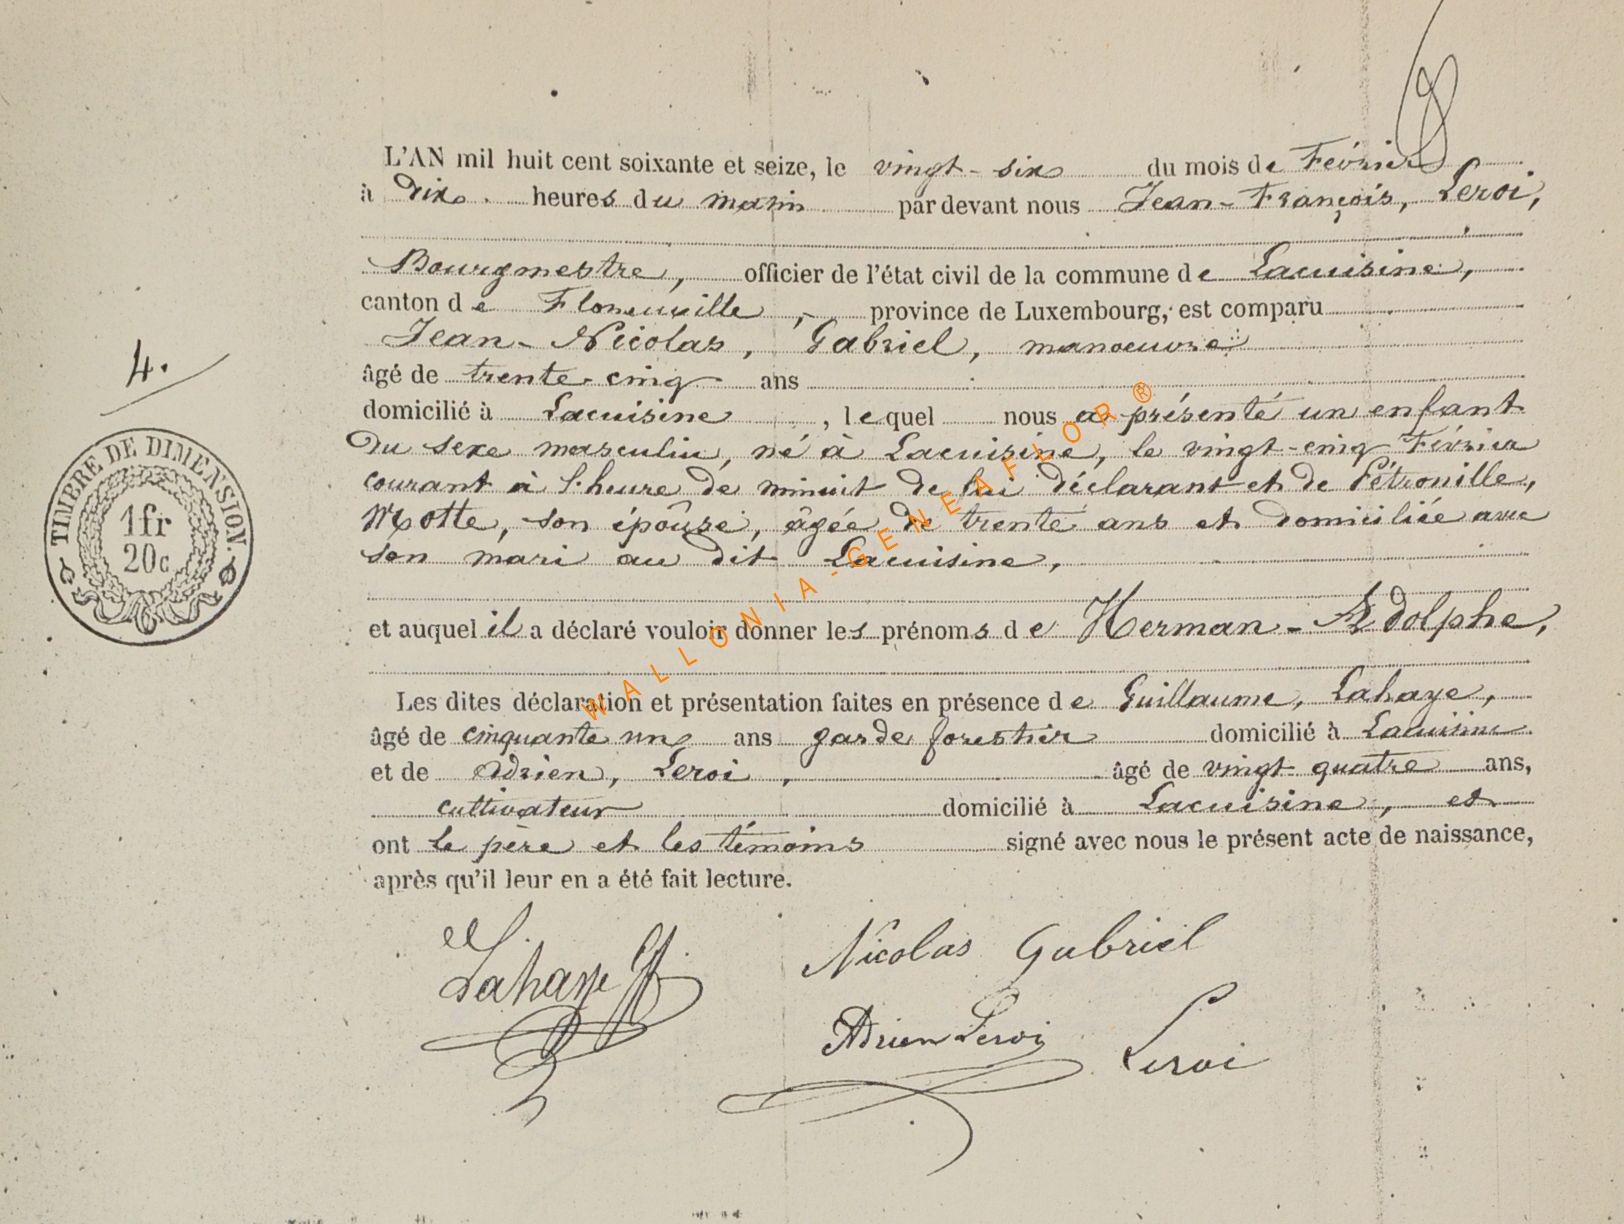 L'AN mil huit cent soixante et seize, le vingt-six du mois de Février
à dix heures du matin par devant nous Jean-François, Leroi,
Bourgmestre, officier de l'état civil de la commune de Lacuisine,
canton de Florenville, province de Luxembourg, est comparu
Jean-Nicolas, Gabriel, manoeuvre
âgé de trente-cinq ans
domicilié à Lacuisine, lequel nous a présenté un enfant
du sexe masculin, né à Lacuisine, le vingt-cinq Février
courant à l'heure de minuit de lui déclarant et de Pétronille,
Motte, son épouse, âgée de trente ans et domiciliée avec
son mari au dit Lacuisine,
et auquel il a déclaré vouloir donner les prénoms de Herman-Adolphe,
Les dites déclaration et présentation faites en présence de Guillaume, Lahaye,
âgé de cinquante un ans garde forestier domicilié à Lacuisine
et de Adrien, Leroi, âgé de vingt quatre ans,
cultivateur domicilié à Lacuisine, et
ont le père et les témoins signé avec nous le présent acte de naissance,
après qu'il leur en a été fait lecture.
4.
TIMBRE DE DIMENSION.
1fr
20c
WALLONIA-GENEAFLOR®
Lahaye
Nicolas Gabriel
Adrien Leroi
Leroi